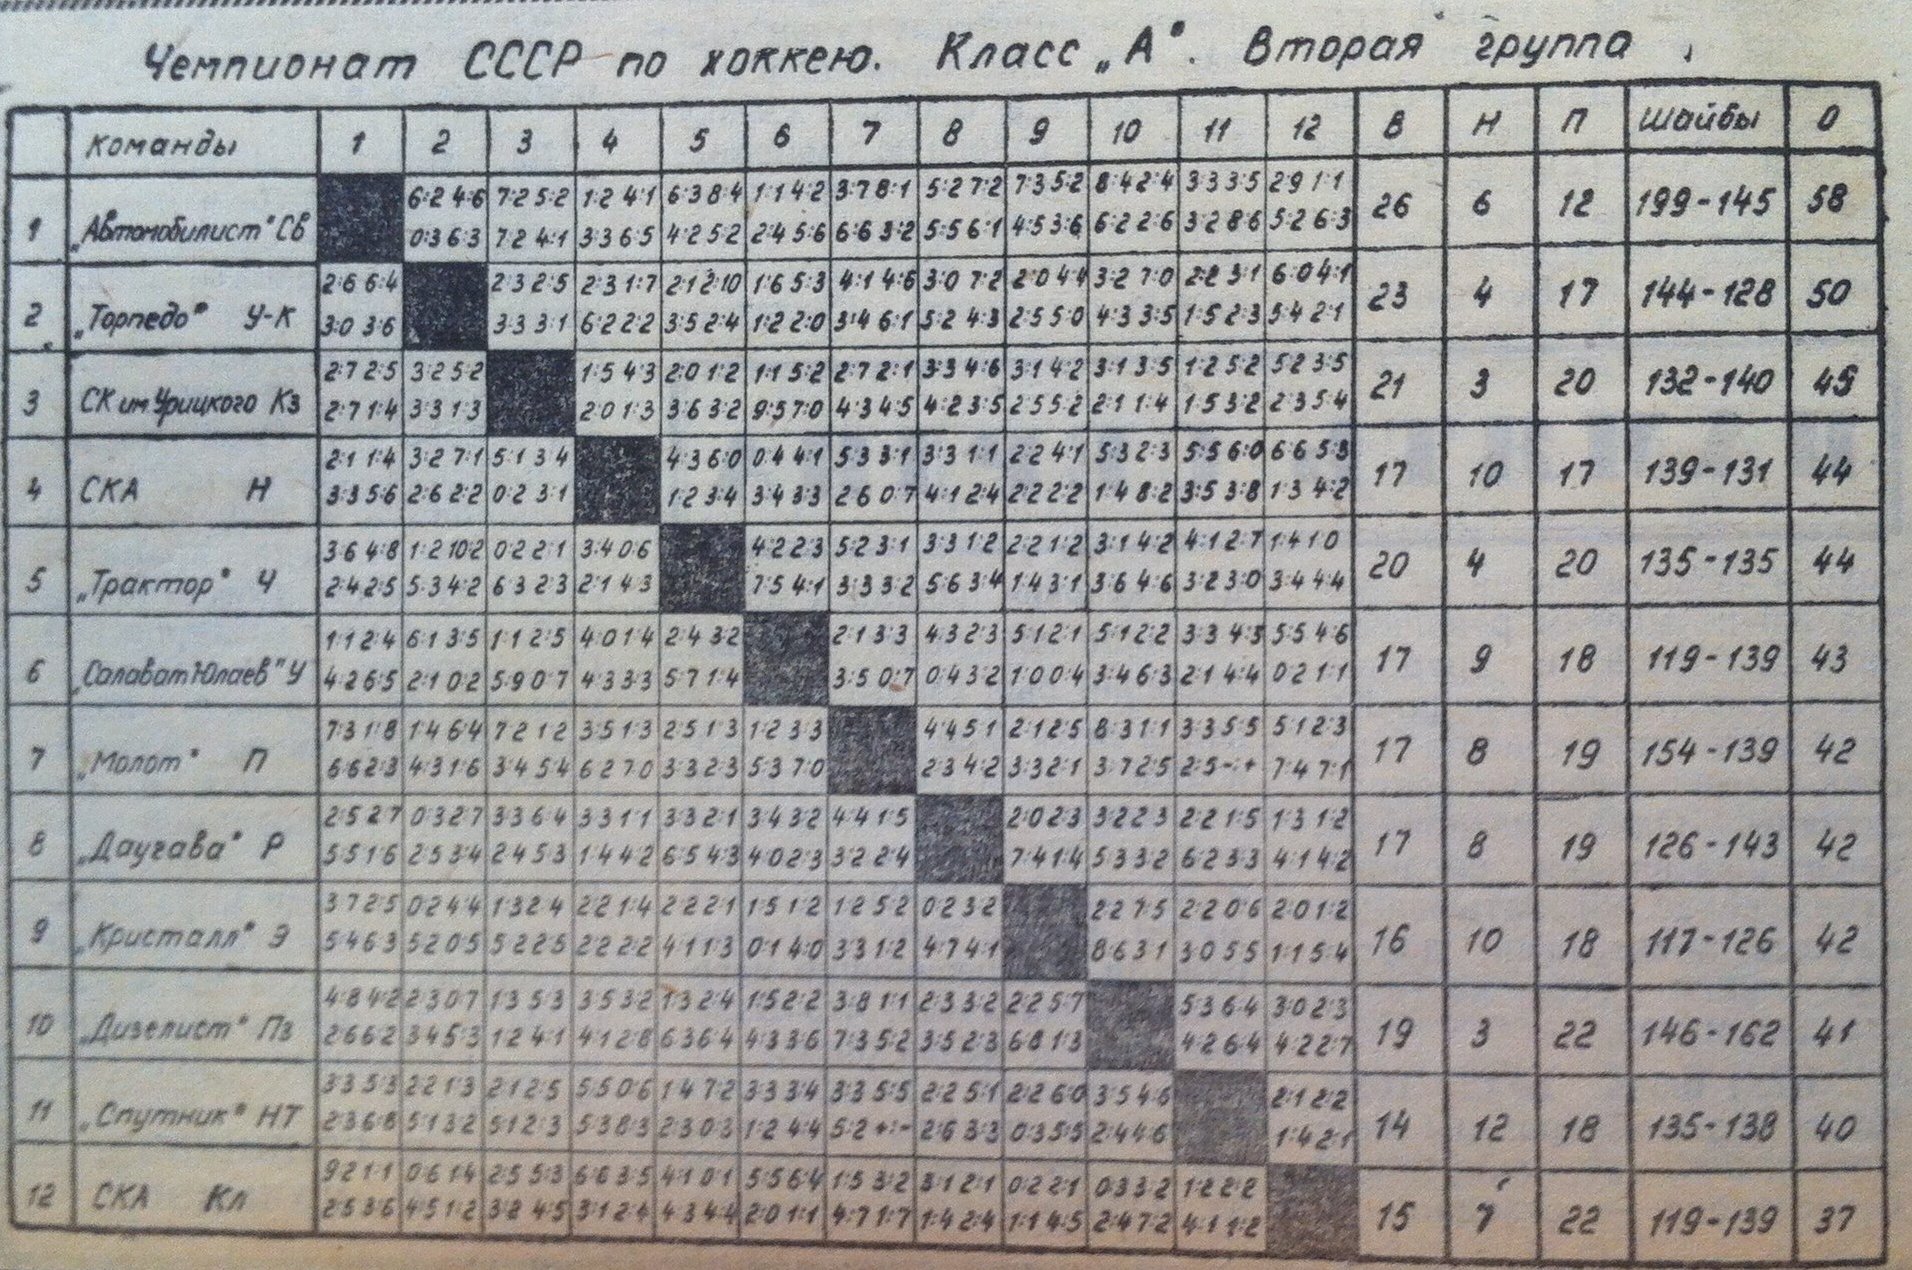 Чемпионат СССР по хоккею. Класс „А". Вторая группа
команды 1 2 3 4 5 6 7 8 9 10 11 12 В Н П шайбы О
6:2 4:6 7:2 5:2 1:2 4:1 6:3 8:4 1:1 4:2 3:7 8:1 5:2 7:2 7:3 5:2 8:4 2:4 3:3 3:5 2:9 1:1
1 „Автомобилист" Св 0:3 6:3 7:2 4:1 3:3 6:5 4:2 5:2 2:4 5:6 6:6 3:2 5:5 6:1 4:5 3:6 6:2 2:6 3:2 8:6 5:2 6:3 26 6 12 199-145 58
2:6 6:4 2:3 2:5 2:3 1:7 2:1 2:10 1:6 5:3 4:1 4:6 3:0 7:2 2:0 4:4 3:2 7:0 2:2 3:1 6:0 4:1
2 „Торпедо" У-К 3:0 3:6 3:3 3:1 6:2 2:2 3:5 2:4 1:2 2:0 3:4 6:1 5:2 4:3 2:5 5:0 4:3 3:5 1:5 2:3 5:4 2:1 23 4 17 144-128 50
2:7 2:5 3:2 5:2 1:5 4:3 2:0 1:2 1:1 5:2 2:7 2:1 3:3 4:6 3:1 4:2 3:1 3:5 1:2 5:2 5:2 3:5
3 СК им Урицкого Кз 2:7 1:4 3:3 1:3 2:0 1:3 3:6 3:2 9:5 7:0 4:3 4:5 4:2 3:5 2:5 5:2 2:1 1:4 1:5 3:2 2:3 5:4 21 3 20 132-140 45
2:1 1:4 3:2 7:1 5:1 3:4 4:3 6:0 0:4 4:1 5:3 3:1 3:3 1:1 2:2 4:1 5:3 2:3 5:5 6:0 6:6 5:3
4 СКА Н 3:3 5:6 2:6 2:2 0:2 3:1 1:2 3:4 3:4 3:3 2:6 0:7 4:1 2:4 2:2 2:2 1:4 8:2 3:5 3:8 1:3 4:2 17 10 17 139-131 44
3:6 4:8 1:2 10:2 0:2 2:1 3:4 0:6 4:2 2:3 5:2 3:1 3:3 1:2 2:2 1:2 3:1 4:2 4:1 2:7 1:4 1:0
5 „Трактор" Ч 2:4 2:5 5:3 4:2 6:3 2:3 2:1 4:3 7:5 4:1 3:3 3:2 5:6 3:4 1:4 3:1 3:6 4:6 3:2 3:0 3:4 4:4 20 4 20 135-135 44
1:1 2:4 6:1 3:5 1:1 2:5 4:0 1:4 2:4 3:2 2:1 3:3 4:3 2:3 5:1 2:1 5:1 2:2 3:3 4:3 5:5 4:6
6 „Салават Юлаев" У 4:2 6:5 2:1 0:2 5:9 0:7 4:3 3:3 5:7 1:4 3:5 0:7 0:4 3:2 1:0 0:4 3:4 6:3 2:1 4:4 0:2 1:1 17 9 18 119-139 43
7:3 1:8 1:4 6:4 7:2 1:2 3:5 1:3 2:5 1:3 1:2 3:3 4:4 5:1 2:1 2:5 8:3 1:1 3:3 5:5 5:1 2:3
7 „Молот" П 6:6 2:3 4:3 1:6 3:4 5:4 6:2 7:0 3:3 2:3 5:3 7:0 2:3 4:2 3:3 2:1 3:7 2:5 2:5 -:+ 7:4 7:1 17 8 19 154-139 42
2:5 2:7 0:3 2:7 3:3 6:4 3:3 1:1 3:3 2:1 3:4 3:2 4:4 1:5 2:0 2:3 3:2 2:3 2:2 1:5 1:3 1:2
8 „Даугава" Р 5:5 1:6 2:5 3:4 2:4 5:3 1:4 4:2 6:5 4:3 4:0 2:3 3:2 2:4 7:4 1:4 5:3 3:2 6:2 3:3 4:1 4:2 17 8 19 126-143 42
3:7 2:5 0:2 4:4 1:3 2:4 2:2 1:4 2:2 2:1 1:5 1:2 1:2 5:2 0:2 3:2 2:2 7:5 2:2 0:6 2:0 1:2
9 „Кристалл" Э 5:4 6:3 5:2 0:5 5:2 2:5 2:2 2:2 4:1 1:3 0:1 4:0 3:3 1:2 4:7 4:1 8:6 3:1 3:0 5:5 1:1 5:4 16 10 18 117-126 42
4:8 4:2 2:3 0:7 1:3 5:3 3:5 3:2 1:3 2:4 1:5 2:2 3:8 1:1 2:3 3:2 2:2 5:7 5:3 6:4 3:0 2:3
10 „Дизелист" Пз 2:6 6:2 3:4 5:3 1:2 4:1 4:1 2:8 6:3 6:4 4:3 3:6 7:3 5:2 3:5 2:3 6:8 1:3 4:2 6:4 4:2 2:7 19 3 22 146-162 41
3:3 5:3 2:2 1:3 2:1 2:5 5:5 0:6 1:4 7:2 3:3 3:4 3:3 5:5 2:2 5:1 2:2 6:0 3:5 4:6 2:1 2:2
11 „Спутник" НТ 2:3 6:8 5:1 3:2 5:1 2:3 5:3 8:3 2:3 0:3 1:2 4:4 5:2 +:- 2:6 3:3 0:3 5:5 2:4 4:6 1:4 2:1 14 12 18 135-138 40
9:2 1:1 0:6 1:4 2:5 5:3 6:6 3:5 4:1 0:1 5:5 6:4 1:5 3:2 3:1 2:1 0:2 2:1 0:3 3:2 1:2 2:2
12 СКА Кл 2:5 3:6 4:5 1:2 3:2 4:5 3:1 2:4 4:3 4:4 2:0 1:1 4:7 1:7 1:4 2:4 1:1 4:5 2:4 7:2 4:1 1:2 15 7 22 119-139 37